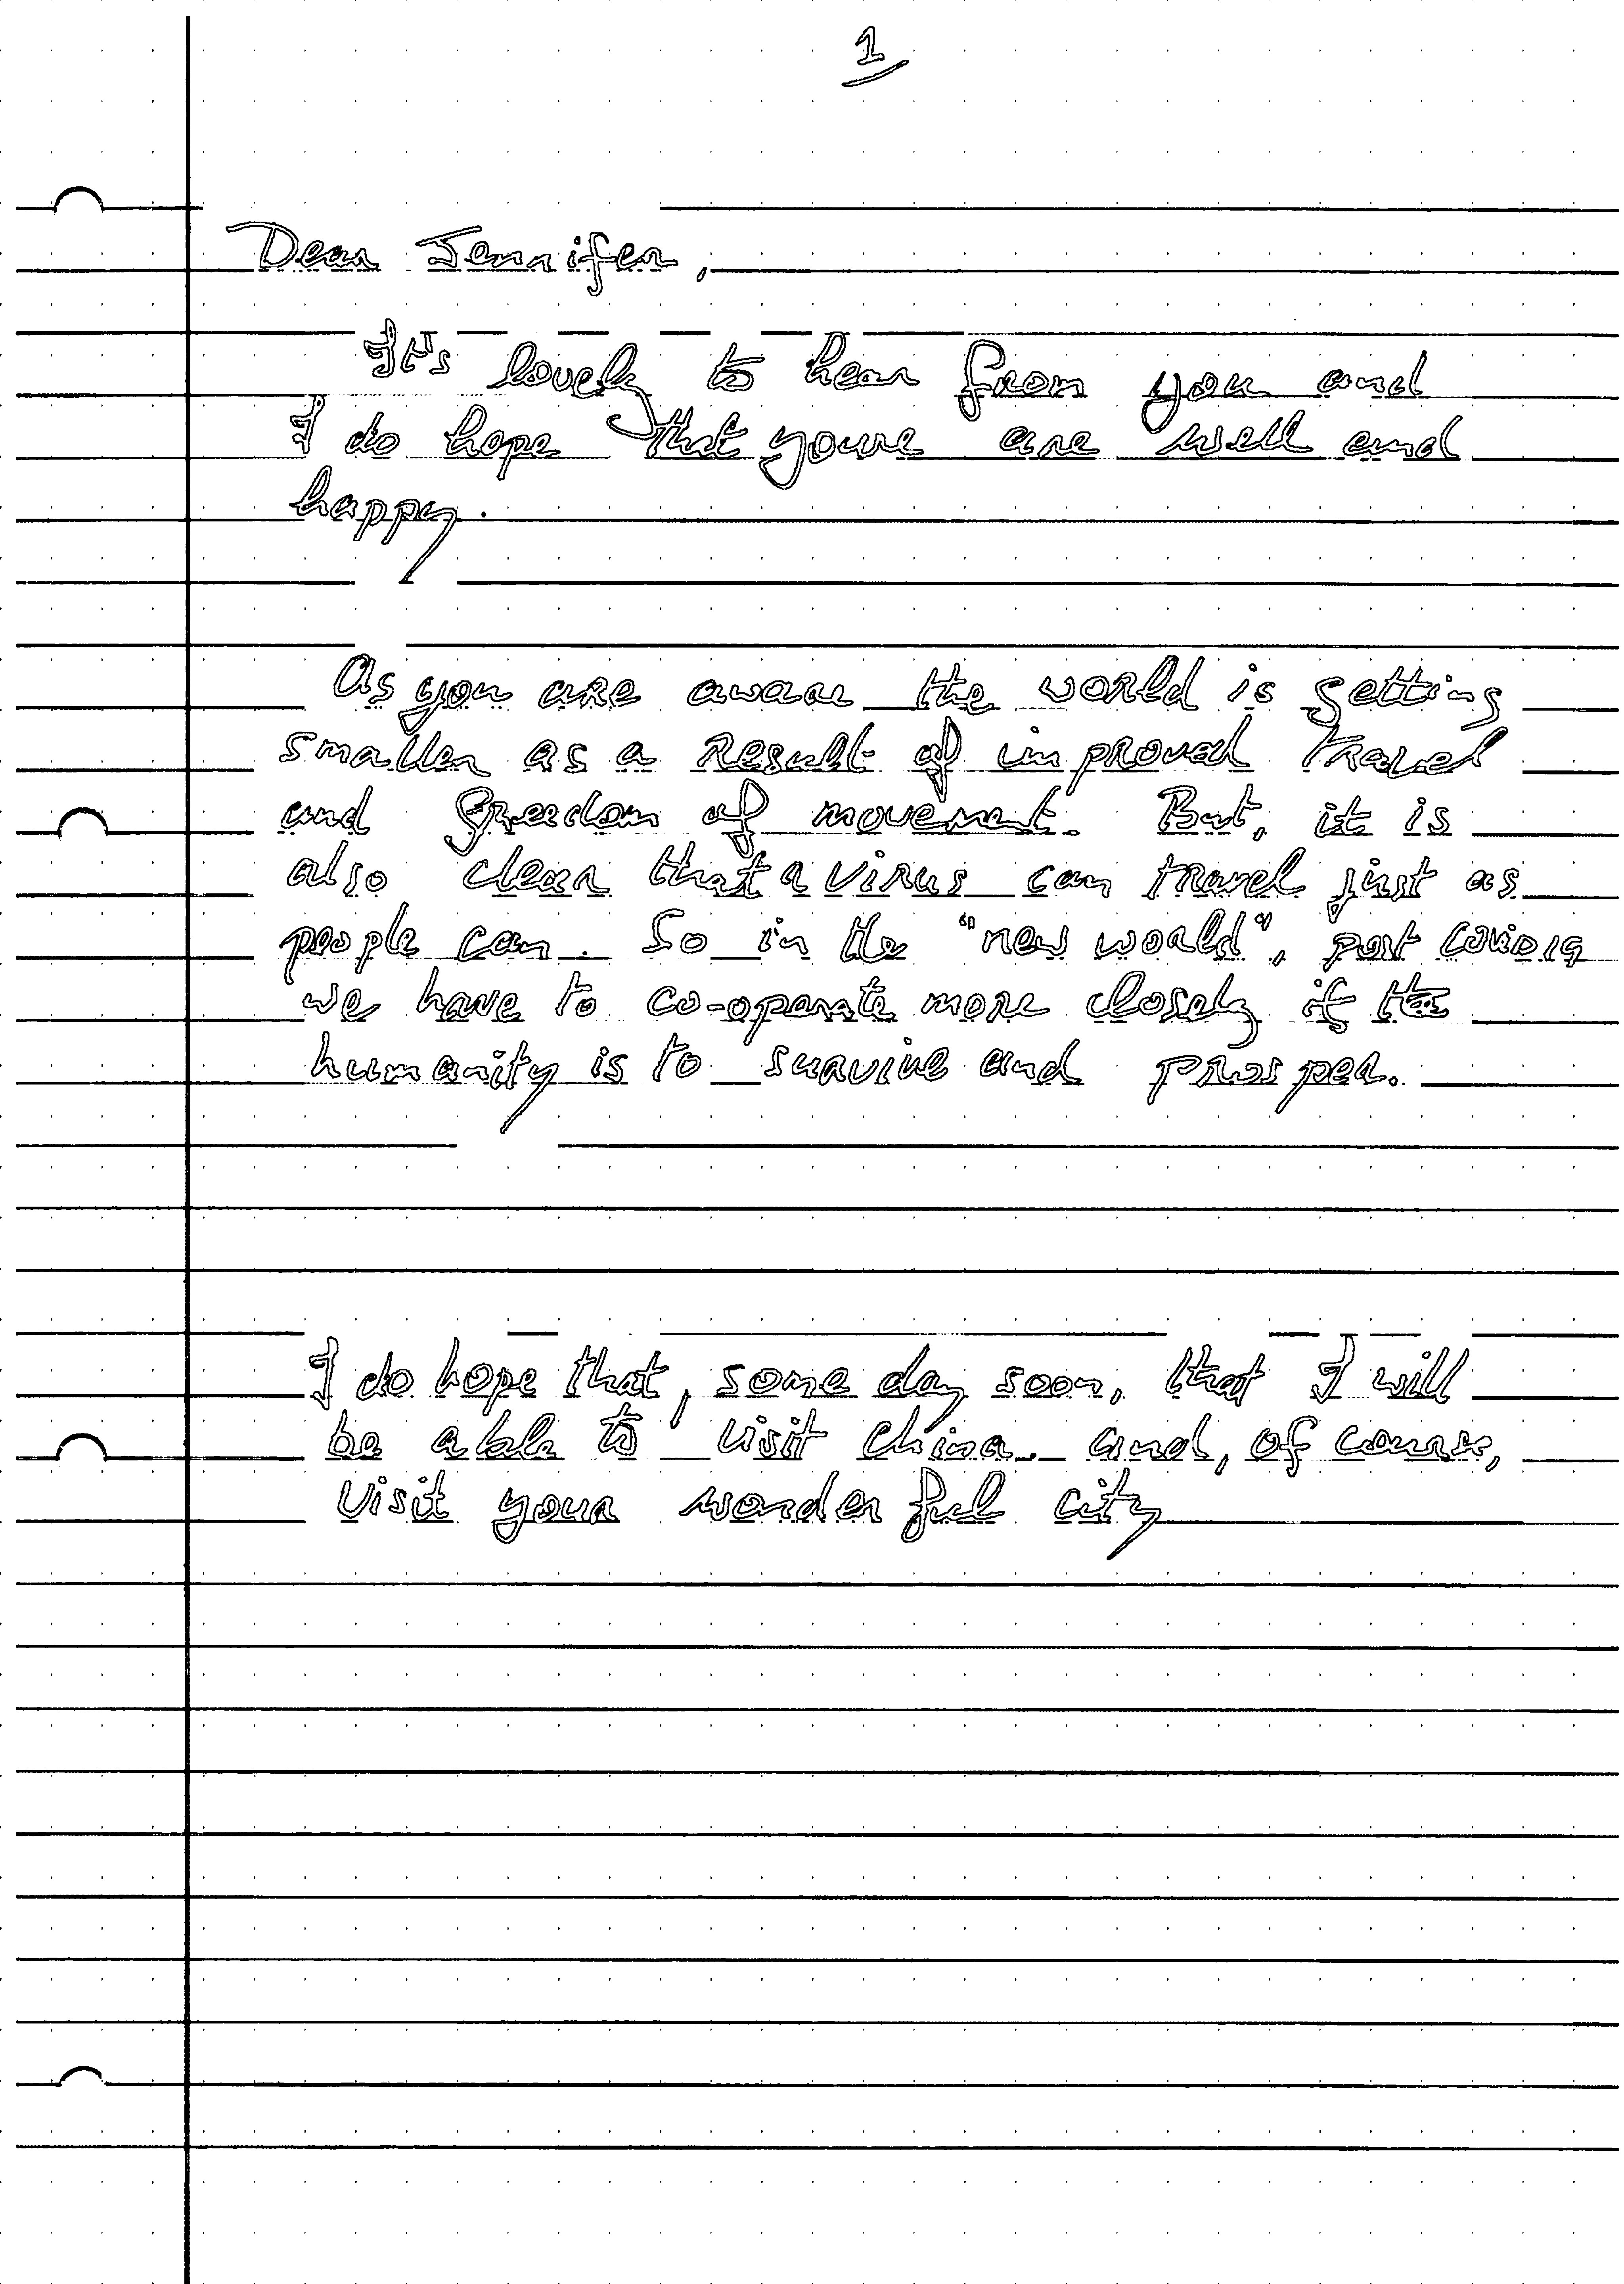 1
Dear Jennifer,
It's lovely to hear from you and
I do hope that youre are well and
happy.
As you are aware the world is getting
smaller as a result of improved travel
and freedom of movement. But, it is
also clear that a virus can travel just as
people can. So in the "new world", post COVID19
we have to co-operate more closely if
humanity is to survive and prosper.
I do hope that, some day soon, that I will
be able to visit China. and, of course,
visit your wonderful city